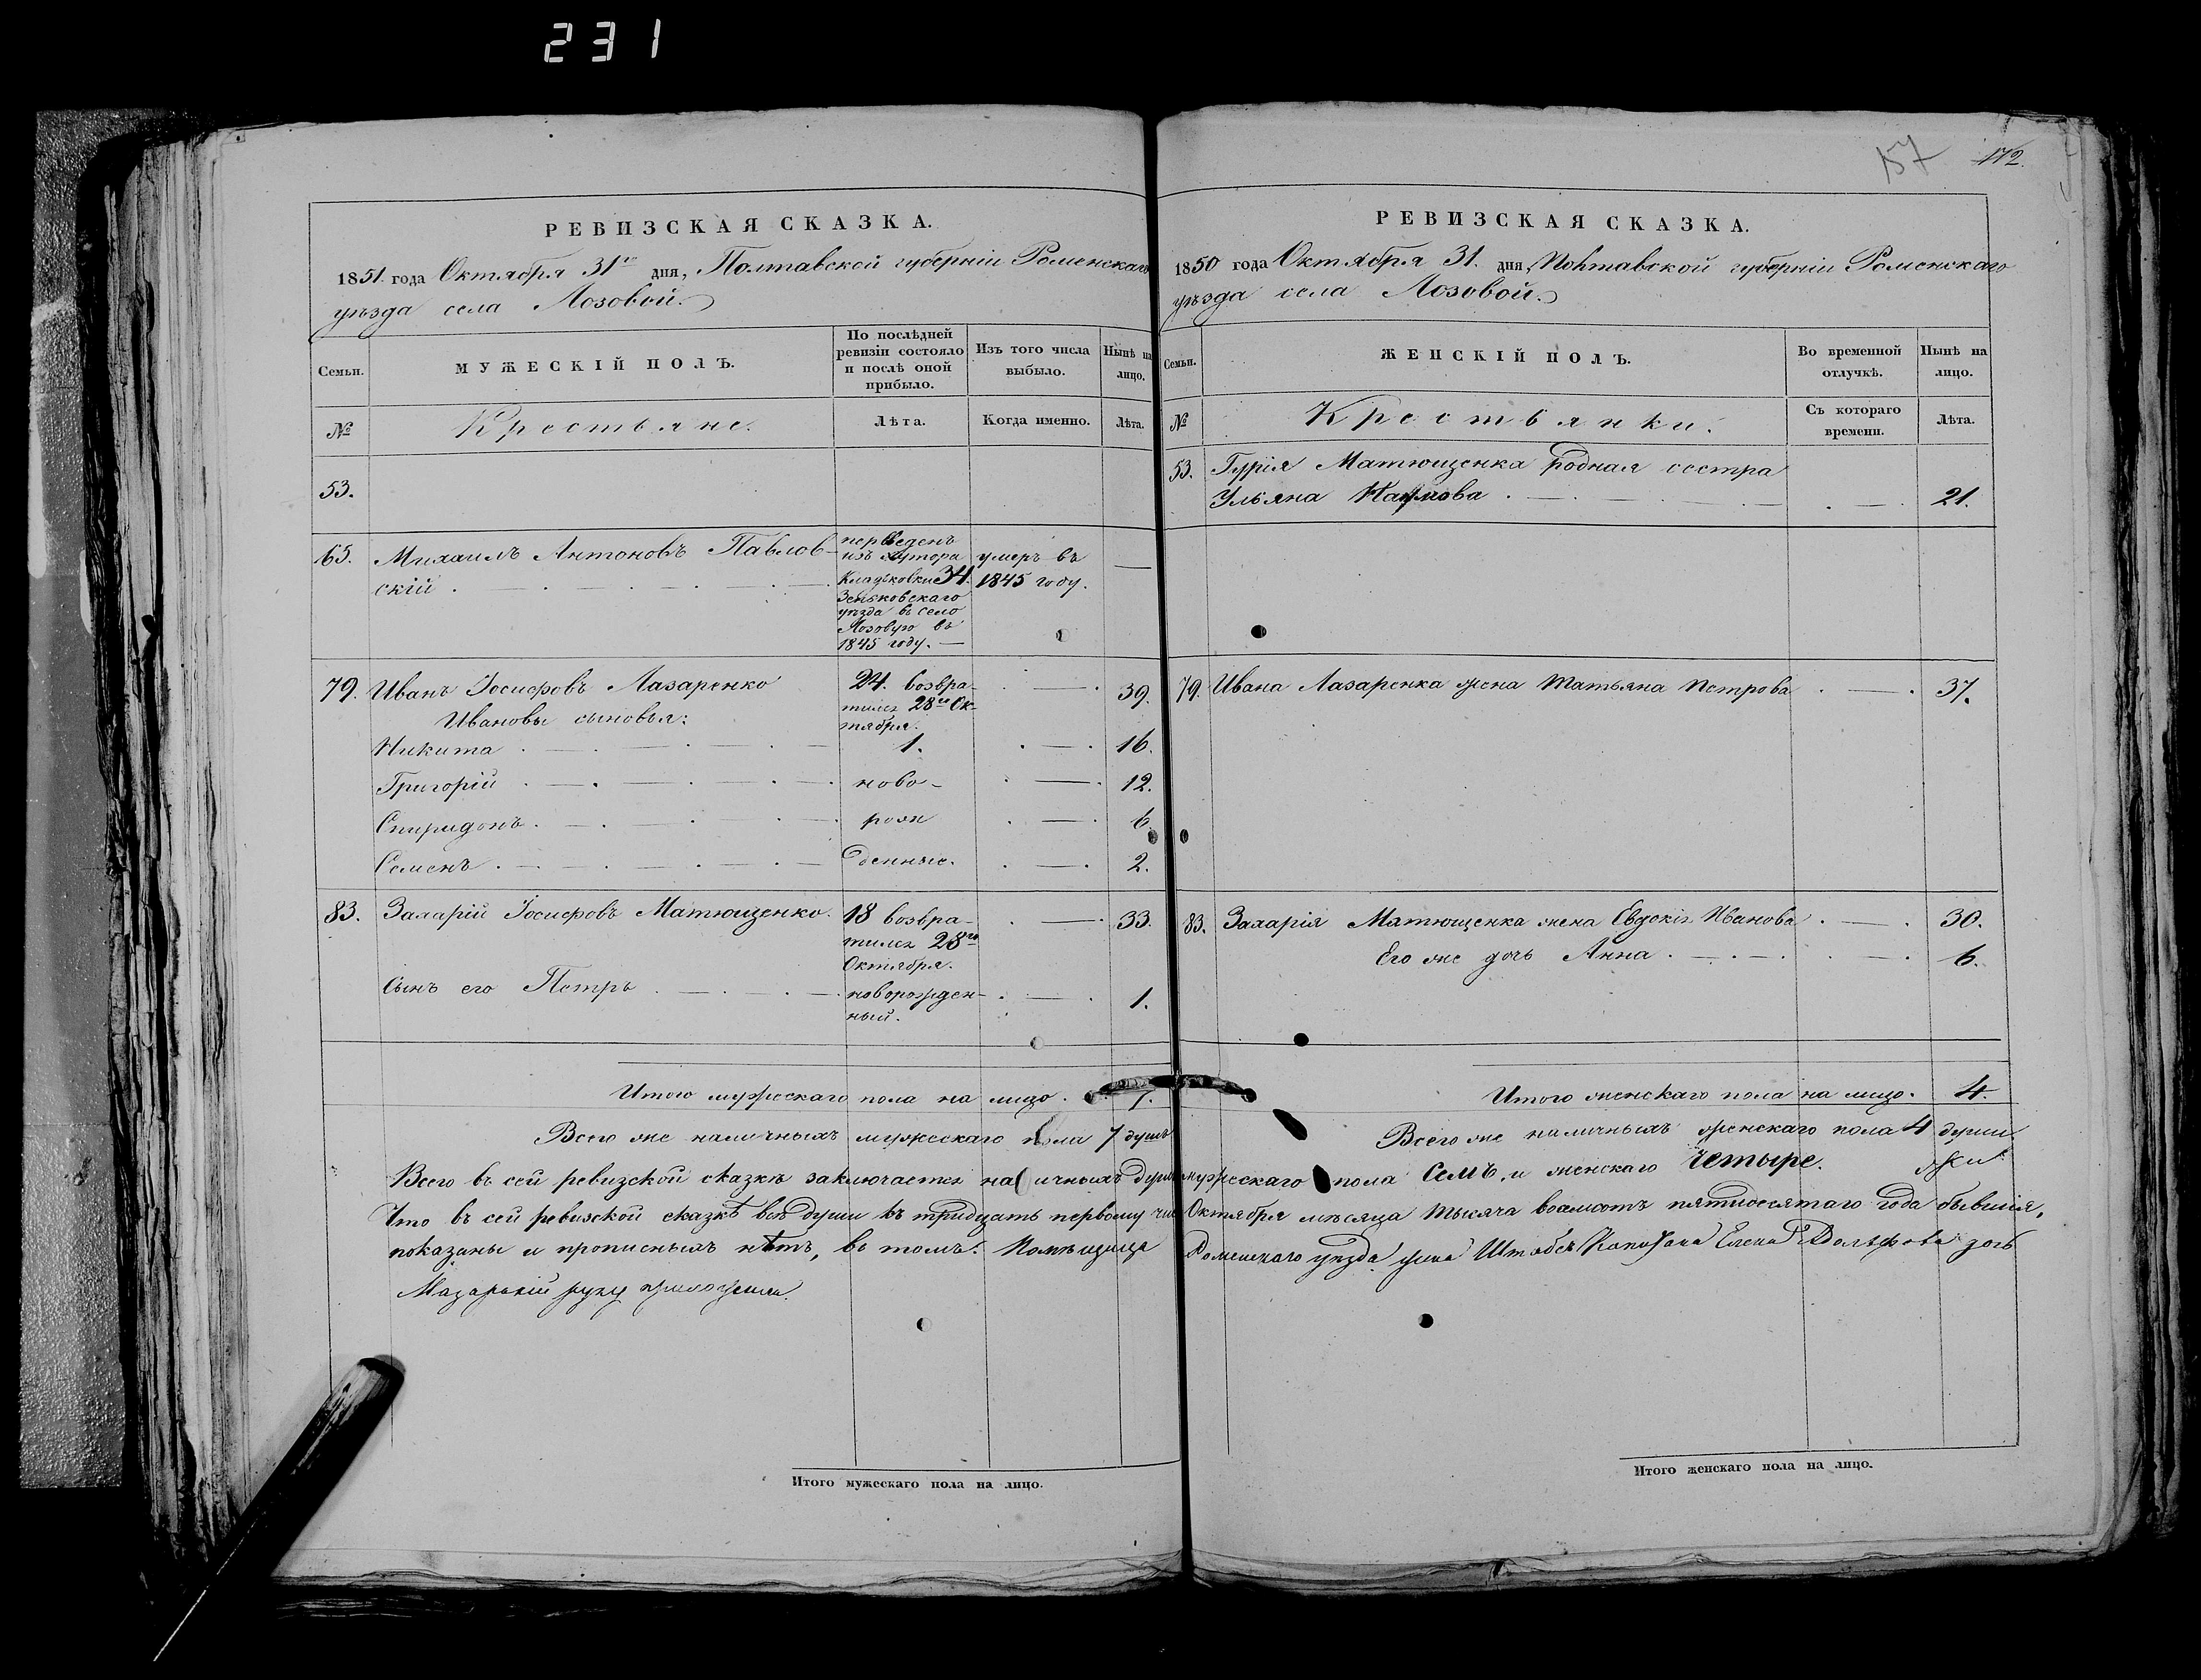 231
157 172.
РЕВИЗСКАЯ СКАЗКА.
1851 года Октября 31го дня, Полтавской губерніи Роменскаго
уѣзда села Лозовой.
Семьи.
МУЖЕСКІЙ ПОЛЪ.
По послѣдней ревизіи состояло и послѣ оной прибыло.
Изъ того числа выбыло.
Нынѣ на лицо.
№
Крестьяне.
Лѣта.
Когда именно.
Лѣта.
53.
65. Михаилъ Антоновъ Павлов-
скій
переведенъ
изъ хутора
34.
Зеньковскаго
уѣзда въ село
Лозовую въ
1845 году. —
умеръ въ
1845 году.
79. Иванъ Іосифовъ Лазаренко 24. возвра- 39.
тился 28го Ок-
тября.
Ивановы сыновья:
Никита 1. 16.
Григорій ново- 12.
Спиридонъ рож 6.
Семенъ денные. 2.
83. Захарій Іосифовъ Матющенко 18 возвра- 33.
тился 28го
Октября.
Сынъ его Петръ новорожден- 1.
ный.
Итого мужескаго пола на лицо. 7.
Всего же наличныхъ мужескаго пола 7 душъ
РЕВИЗСКАЯ СКАЗКА.
1850 года Октября 31. дня, Полтавской губерніи Роменскаго
уѣзда села Лозовой.
Семьи.
ЖЕНСКІЙ ПОЛЪ.
Во временной отлучкѣ.
Нынѣ на лицо.
№
Крестьянки.
Съ котораго времени.
Лѣта.
53. Гурія Матющенка родная сестра
Ульяна Наумова 21.
79. Ивана Лазаренка жена Татьяна Петрова 37.
83. Захарія Матющенка жена Евдокія Иванова 30.
Его же дочь Анна 6.
Итого женскаго пола на лицо. 4.
Всего же наличныхъ женскаго пола 4 души.
Всего въ сей ревизской сказкѣ заключается наличныхъ душъ мужескаго пола Семъ, и женскаго Четыре.
Что въ сей ревизской сказкѣ всѣ души къ тридцать первому Октября мѣсяца тысяча восмсотъ пятидесятаго года бывшія,
показаны и прописныхъ нѣтъ, въ томъ: Помѣщица Роменскаго уѣзда жена Штабсъ Капитана Елена дочь
руку приложила.
Итого мужескаго пола на лицо.
Итого женскаго пола на лицо.